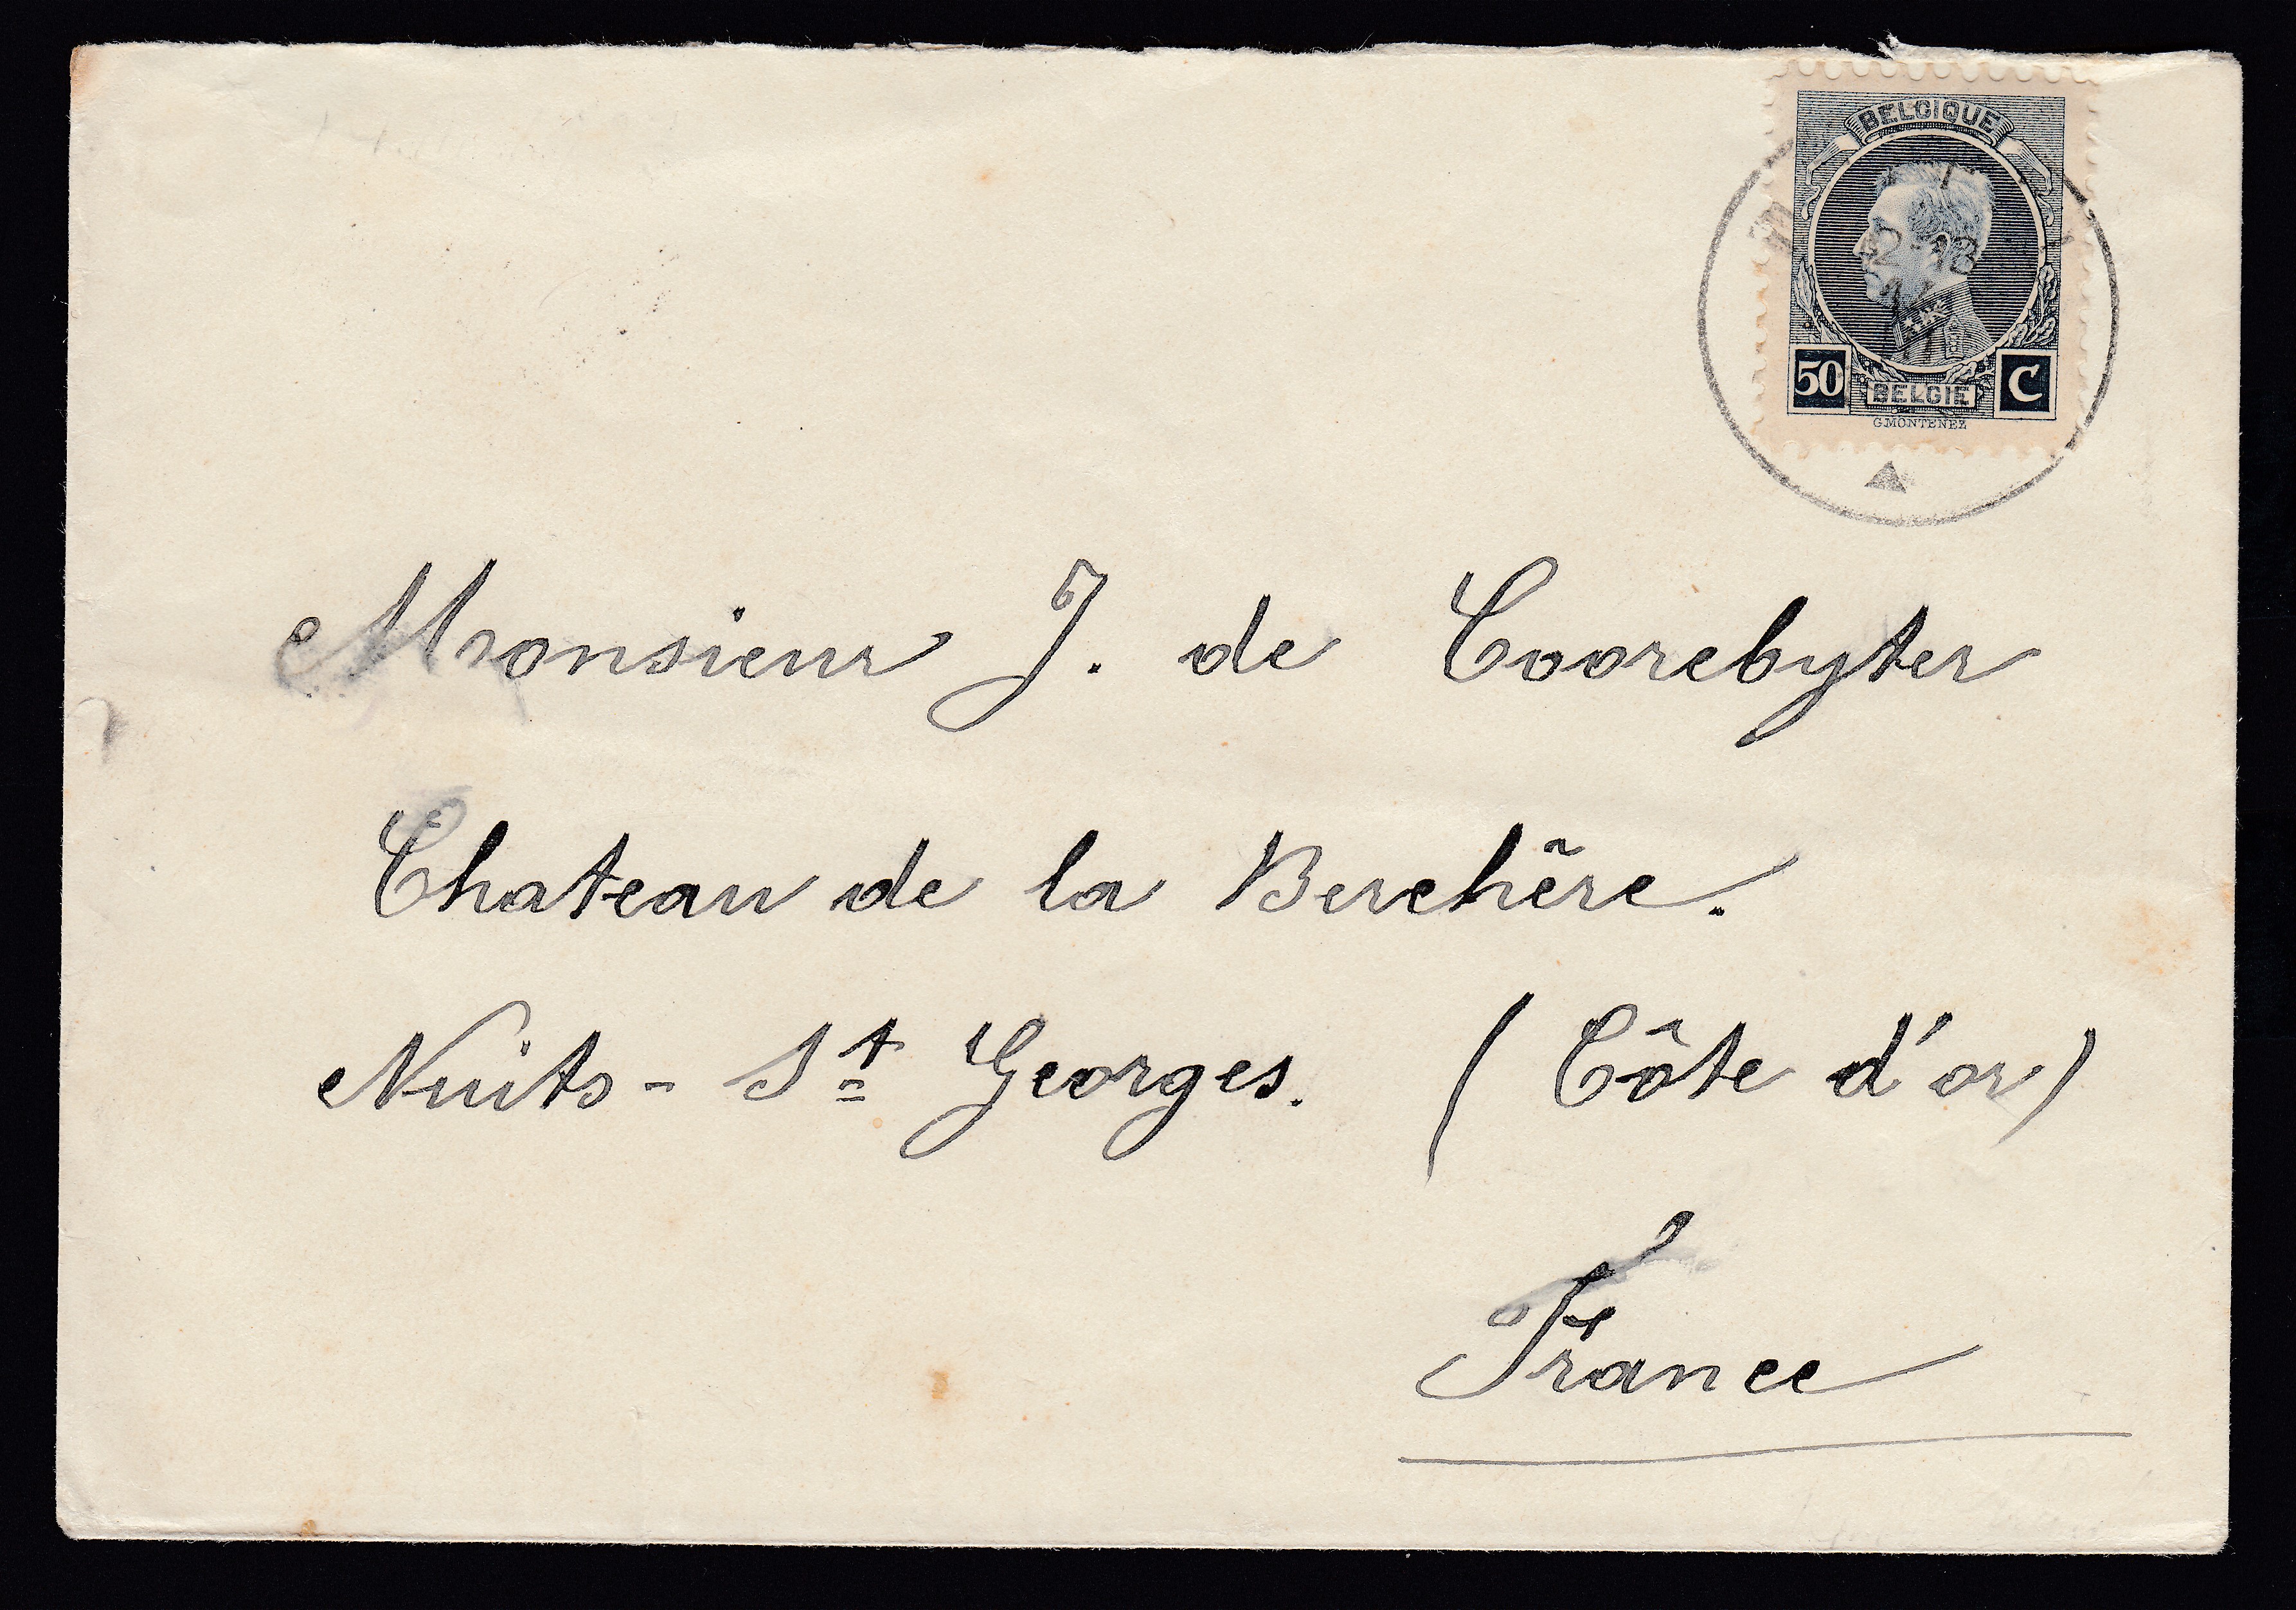 BELGIQUE
12-13
50 BELGIE C
G.MONTENEZ
Monsieur J. de Coorebyter
Chateau de la Berchêre.
Nuits - St Georges. ( Côte d'or )
France